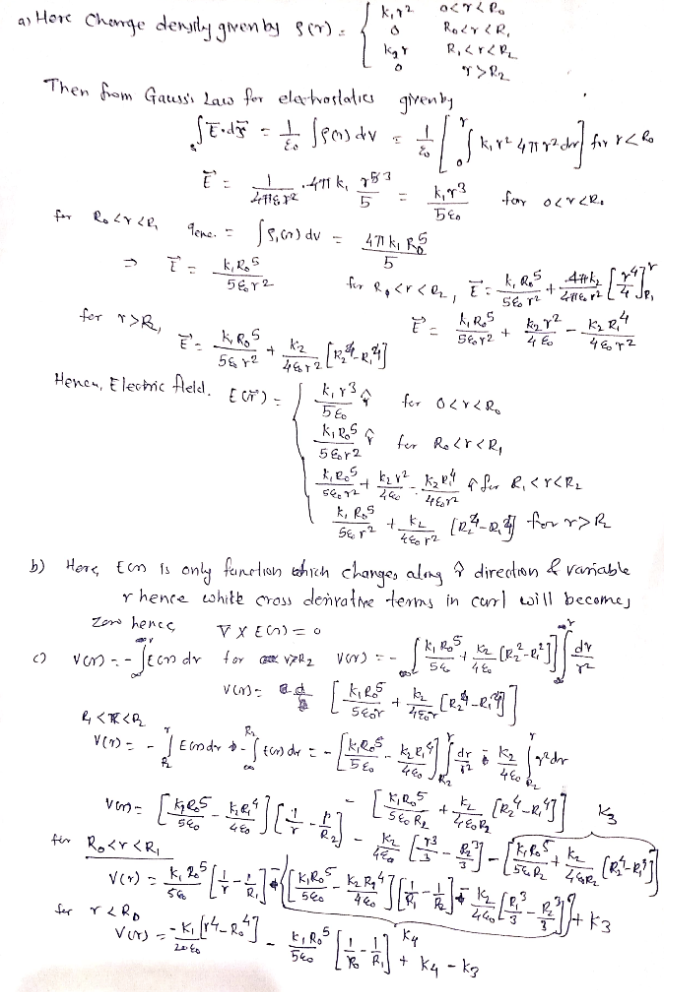 a) Here Charge density given by ρ(r) = { k₁r² 0<r<R₀
0 R₀<r<R₁
k₂r R₁<r<R₂
0 r>R₂
Then from Gauss's Law for electrostatics given by
∫E̅·ds̅ = 1/ε₀ ∫ρ(r) dv = 1/ε₀ [∫₀ʳ k₁r² 4πr² dr] for r<R₀
E⃗ = 1/4πε₀r² · 4πk₁ r⁵/5 = k₁r³/5ε₀ for 0<r<R₀
for R₀<r<R₁ qenc. = ∫ρ₁(r) dv = 4πk₁R₀⁵/5
⇒ E⃗ = k₁R₀⁵/5ε₀r² for R₁<r<R₂, E⃗ = k₁R₀⁵/5ε₀r² + 4πk₂/4πε₀r² [r⁴/4]ʳ_R₁
E⃗ = k₁R₀⁵/5ε₀r² + k₂r²/4ε₀ - k₂R₁⁴/4ε₀r²
for r>R₂, E⃗ = k₁R₀⁵/5ε₀r² + k₂/4ε₀r² [R₂⁴-R₁⁴]
Hence, Electric field. E(r⃗) = { k₁r³/5ε₀ r̂ for 0<r<R₀
k₁R₀⁵/5ε₀r² r̂ for R₀<r<R₁
k₁R₀⁵/5ε₀r² + k₂r²/4ε₀ - k₂R₁⁴/4ε₀r² r̂ for R₁<r<R₂
k₁R₀⁵/5ε₀r² + k₂/4ε₀r² [R₂⁴-R₁⁴] for r>R₂
b) Here, E(r) is only function which changes along r̂ direction & variable
r hence white cross derivative terms in curl will becomes
zero hence, ∇ X E(r) = 0
c) V(r) = -∫E(r) dr for r>R₂ V(r) = -∫[k₁R₀⁵/5ε₀ + k₂/4ε₀ [R₂²-R₁²]] ∫dr/r²
V(r) = [k₁R₀⁵/5ε₀r + k₂/4ε₀r [R₂⁴-R₁⁴]]
R₁<r<R₂
V(r) = -∫E(r)dr - ∫E(r)dr = -[k₁R₀⁵/5ε₀ - k₂R₁⁴/4ε₀] ∫dr/r² - k₂/4ε₀ ∫r²dr
- [k₁R₀⁵/5ε₀R₂ + k₂/4ε₀R₂ [R₂⁴-R₁⁴]] k₃
V(r) = [k₁R₀⁵/5ε₀ - k₂R₁⁴/4ε₀] [1/r - 1/R₂] - k₂/4ε₀ [r³/3 - R₂³/3] - [k₁R₀⁵/5ε₀R₂ + k₂/4ε₀R₂ [R₂⁴-R₁⁴]]
for R₀<r<R₁
V(r) = k₁R₀⁵/5ε₀ [1/r - 1/R₁] + {[k₁R₀⁵/5ε₀ - k₂R₁⁴/4ε₀] [1/R₁ - 1/R₂] - k₂/4ε₀ [R₁³/3 - R₂³/3]} + k₃
for r<R₀ k₄
V(r) = -k₁[r⁴-R₀⁴]/20ε₀ - k₁R₀⁵/5ε₀ [1/R₀ - 1/R₁] + k₄ - k₃